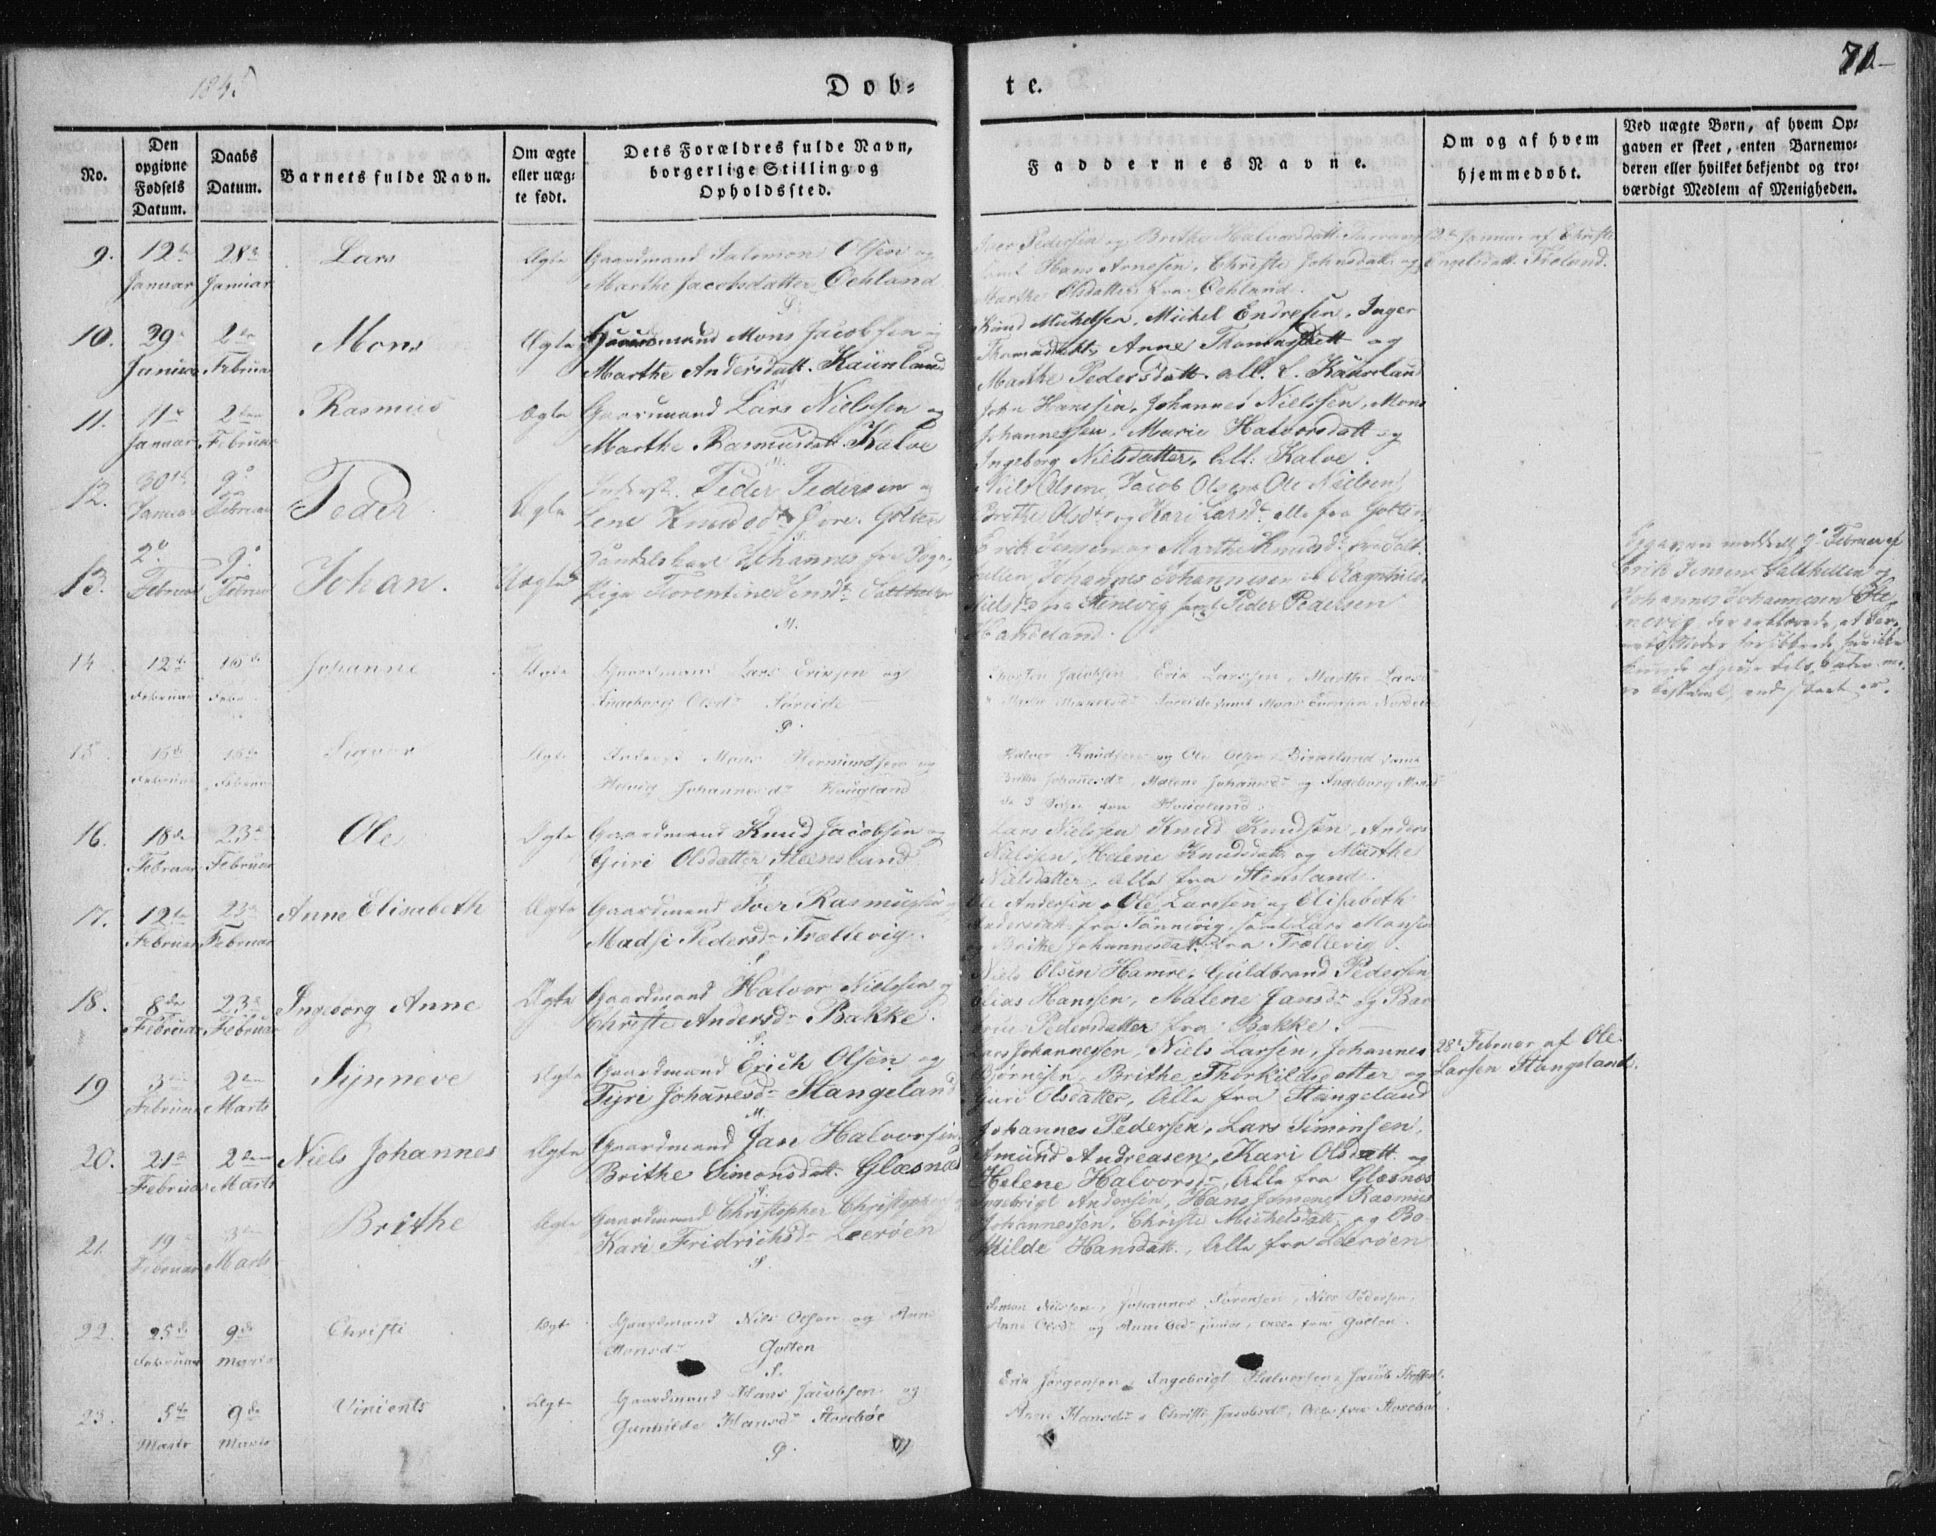 184
71
Dob-
te.
No.
Den opgivne Fødsels Datum.
Daabs Datum.
Barnets fulde Navn.
Om ægte eller uægte født.
Dets Forældres fulde Navn, borgerlige Stilling og Opholdssted.
Faddernes Navne.
Om og af hvem hjemmedøbt.
Ved uægte Børn, af hvem Opgaven er skeet, enten Barnemoderen eller hvilket bekjendt og troværdigt Medlem af Menigheden.
9. 12te Januar 28de Januar Lars Ægte
Gaardmand Salomon Olsen og
Marthe Jacobsdatter Øchland
Iver Pedersen og Brithe Halvorsdatt.
samt Hans Arnesen, Christi Johnsdatt og
Marthe Olsdatter fra Øchland
Januar af Christi
Engelsdatt.
10. 29 Januar 2den Februar Mons Ægte
Gaardmand Mons Jacobsen og
Marthe Andersdatt. Kaursland
Knud Michelsen, Michel Endresen, Inger
Thomasdatt, Anne Thomasdatt og
Marthe Pedersdatt. all. f. Kaursland
11. 11te Januar 2den Februar Rasmus Ægte
Gaardmand Lars Nielssen og
Marthe Rasmusdatt. Kalve
John Hanssen, Johannes Nielssen, Mons
Johannessen, Marie Halvorsdatt og
Ingeborg Nielsdatter, All. Kalve.
12. 30te Januar 9de Februar Peder Ægte
Inderst. Peder Pedersen og
Lene Knudsdtr Øvre. Golten
Niels Olsen, Jacob Olsen, Ole Nielsen
Brethe Olsdtr og Kari Larsdtr alle fra Golten
13. 2de Februar 9de Februar Johan. Uægte
Johannes fra Sogn,
Pige Florentine Jensdtr Salthellen
M.
Erik Jensen og Marthe Knudsdtr fra Salt-
hellen, Johannes Johannesen og Ragnhilde
Nielsdtr fra Stenevig samt Peder Pedersen
Haakeland.
Opgaven meddelt 9de Februar af
Erik Jensen Salthellen og
Johannes Johannesen Ste-
nevig, der erklærede, at Bar-
nets Moder forsikrede, hun ikke
kunde opgive dets Fader me-
re bestemt, end skeet er.
14. 12te Februar 16de Febr. Johanne Ægte
Gaardmand Lars Eriksen og
Ingeborg Olsdtr Søreide
P.
Thorsten Jacobsen, Erik Larssen, Marthe Larsd
Søreide samt Mons
15 15de Februar 16de Februar Ægte
Inderst Mons Hermundsen og
Johannesdtr Hougland
Halvor Knudsen og Ole Olsen Birkeland samt
Brithe Johannesdtr, Malene Johannesdtr og Ingeborg Monsd
fra Hougland.
16. 18de Februar 23de Februar Ole Ægte
Gaardmand Knud Jacobsen og
Guri Olsdatter Steensland
Lars Nielssen Knud Knudsøn, Anders
Nielsen, Helene Knudsdatt og Marthe
Nielsdatter, alle fra Stensland.
17. 12te Februar 23de Februar Anne Elisabeth Ægte
Gaardmand Iver Rasmussen og
Madsi Pedersdtr Trællevig.
Ole Andersen, Ole Larssen og Elisabeth
Andersdatt. fra Tønnevig, samt Lars Monsen
og Brithe Johannesdatt. fra Trællevig
18. 8de Februar 23de Februar Ingeborg Anne Ægte
Gaardmand Halvor Nielsen og
Christi Andersdtr Bakke.
Niels Olsen Hamre, Guldbrand Pedersen
Elias Hanssen, Malene Jansdtr og Bar-
broe Pedersdatter fra Bakke.
19 3die Februar 2den Marts Synneve Ægte
Gaardmand Erich Olsen og
Tyri Johannesdtr Stangeland
M.
Lars Johannessen, Niels Larsen, Johannes
Bjørnsen, Brithe Thorkildsdatter og
Guri Olsdatter, Alle fra Stangeland
28de Februar af Ole
Larsen Stangeland.
20. 21de Februar 2den Marts Niels Johannes Ægte
Gaardmand Jan Halvorsen
Brithe Simonsdatt. Glæsnæs
Johannes Pedersen, Lars Simonsen,
Amund Andreasen, Kari Olsdatt og
Helene Halvorsdtr, Alle fra Glæsnæs
21. 19de Februar Marts Brithe Ægte
Gaardmand Christopher Christophersen
Kari Fridrichsdtr Leerøen
S.
Ingebrigt Andersen, Hans Jansen, Rasmus
Johannessen, Christi Michelsdatt. og Bo-
thilde Hansdatt., Alle fra Leerøen
22. 25de Februar 9de Marts Christi Ægte
Gaardmand Niels Olsen og Anne
Monsdtr Golten
S.
Simon Nielssen, Johannes Sørensen, Niels Pedersen,
Anne Olsdtr og Anne Olsdtr, Alle fra Golten.
23. 5te Marts 9de Marts Vincents Ægte
Gaardmand Hans Jacobsen og
Gunhilde Hansdtr Storebøe
P.
Erik Jørgensen, Ingebrigt Halvorsen,
Anne Hansdtr, Christi Jacobsdtr, Alle fra Storebøe